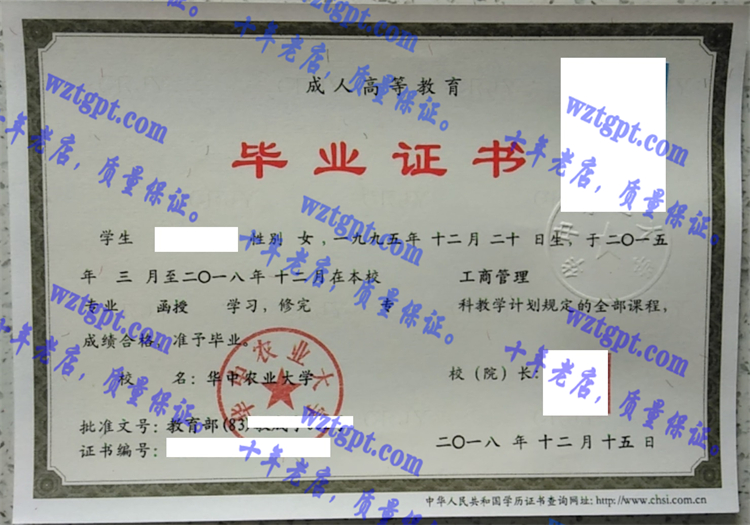 成人高等教育
毕业证书
学生 性别 女，一九九五年 十二月 二十 日生，于二〇一五
年 三 月至二〇一八年 十二月在本校 工商管理
专业 函授 学习，修完 专 科教学计划规定的全部课程，
成绩合格，准予毕业。
校 名：华中农业大学 校（院）长：
批准文号：教育部(83)
证书编号：
二〇一八 年 十二 月 十五 日
中华人民共和国学历证书查询网址: http://www.chsi.com.cn
wztgpt.com
十年老店，质量保证。
wztgpt.com
十年老店，质量保证。
wztgpt.com
十年老店，质量保证。
wztgpt.com
十年老店，质量保证。
wztgpt.com
十年老店，质量保证。
wztgpt.com
十年老店，质量保证。